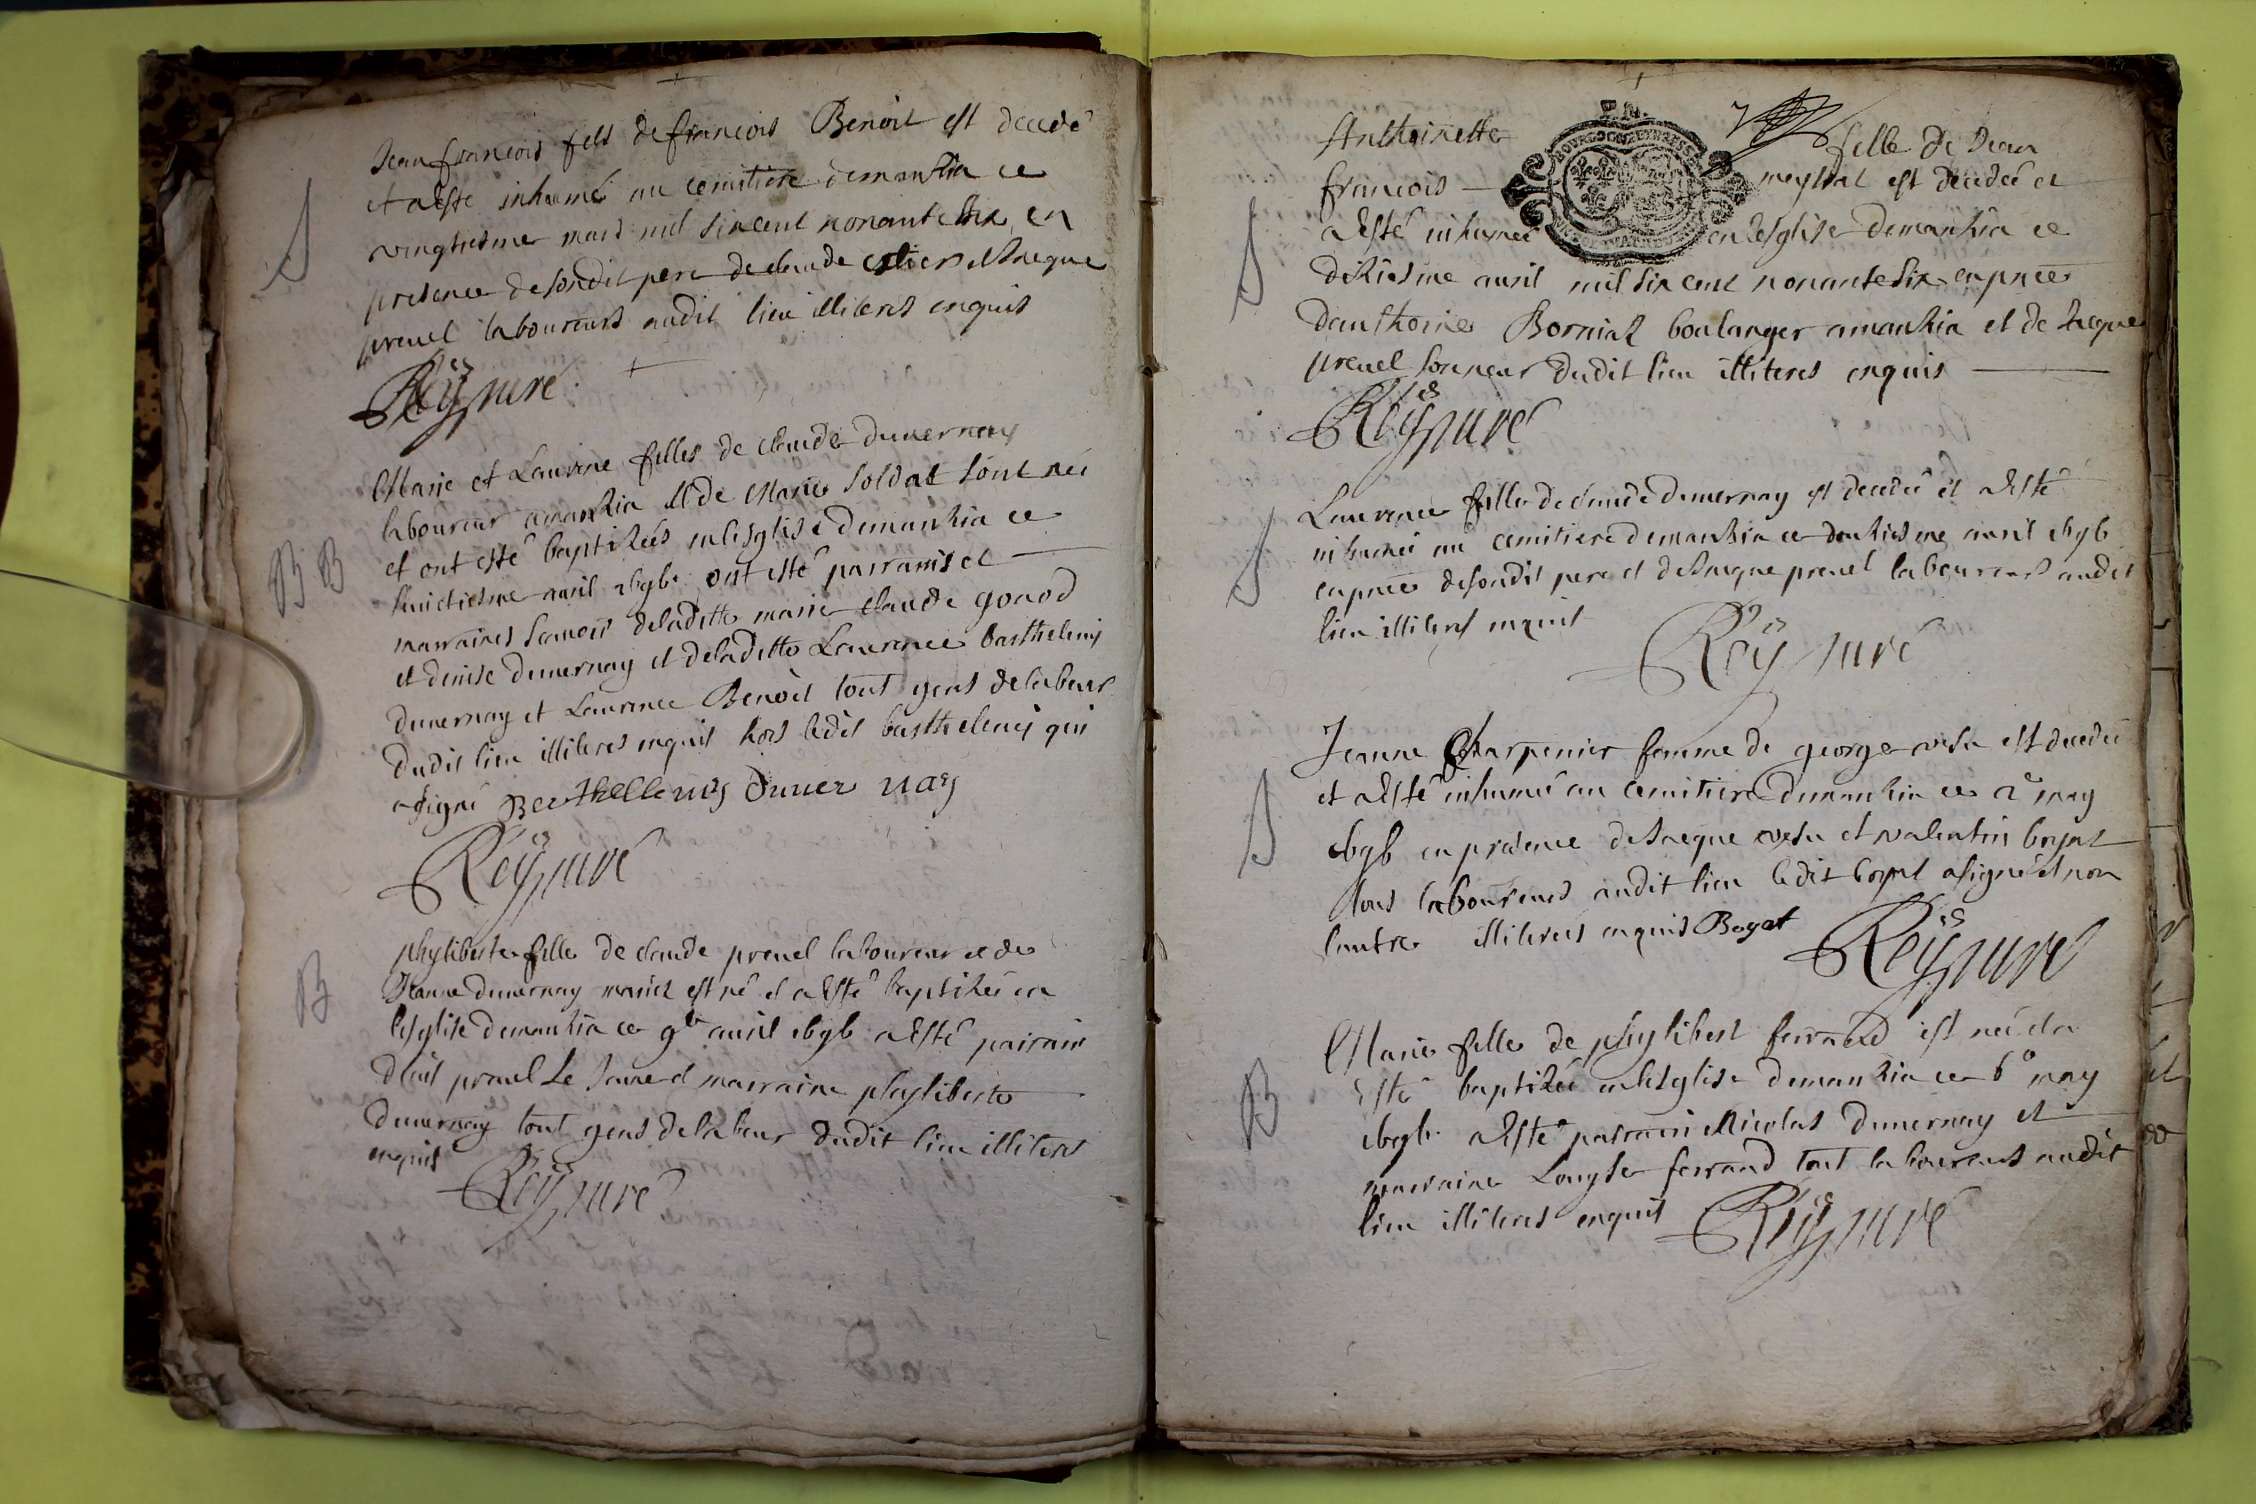 Jean francois fils de francois Benoit est decedé
et a esté inhumé au cemitiere de mantia ce
vingtiesme mars mil six cent nonante six en
presence de sondit pere de claude et Jacque
prevel laboureurs audit lieu illiteres enquis
Reÿ curé
S
Marie et Laurence filles de claude duvernay
laboureur a mankia et de Marie Soldat sont née
et ont esté baptizées en lesglise de mankia ce
huictiesme avril 1696 ont esté parrains et
marraines scavoir de laditte marie claude gonod
et denise duvernay et de laditte Laurence barthelemy
duvernay et Laurence Benoit tout gens de labeur
dudit lieu illiteres enquis hors ledit barthelemy qui
a signé Berthellemy duver nay
Reÿ curé
B B
phyliberte fille de claude prevel laboureur et de
Jeanne duvernay mariez est né et a esté baptizée en
lesglise de mankia ce 9e avril 1696 a esté parrain
prevel le Jeune et marraine phyliberte
duvernay tout gens de labeur dudit lieu illiteres
enquis
Reÿ curé
B
Anthoinette fille de Jean
francois meytral est decedée et
a esté inhumée en lesglise de mankia ce
dixiesme avril mil six cent nonante six en pnce
danthoine Borniat boulanger a mankia et de Jacque
prevel sonneur dudit lieu illiteres enquis
Reÿ curé
S
Laurence fille de claude duvernay est decedée et a esté
inhumée au cemitiere de mankia ce douziesme avril 1696
en pnce de sondit pere et de Jacque prevel laboureurs audit
lieu illiteres enquis
Reÿ curé
S
Jeanne Charpenier femme de george vesu est decedée
et a esté inhumée au cemitiere de mankia ce 2e may
1696 en presence de Jacque vesu et valentin boyat
tous laboureurs audit lieu ledit boyat a signé et non
lautre illiteres enquis Boyat
Reÿ curé
S
Marie fille de phylibert ferrand est née et a
esté baptizée en lesglise de mankia ce 6e may
1696 a esté parrain Nicolas duvernay et
marraine Louyse ferrand tout laboureurs audit
lieu illiteres enquis
Reÿ curé
B